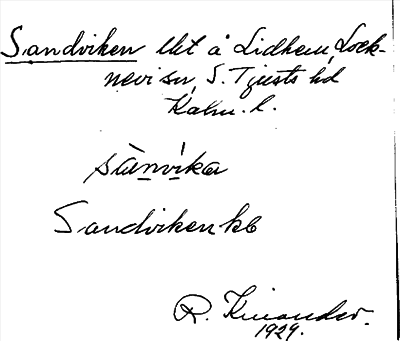 Sandviken Ut å Lidhem, Lock-
nevi sn, S. Tjusts hd
Kalm. l.
Sandviken kb
R. Kinander.
1929.